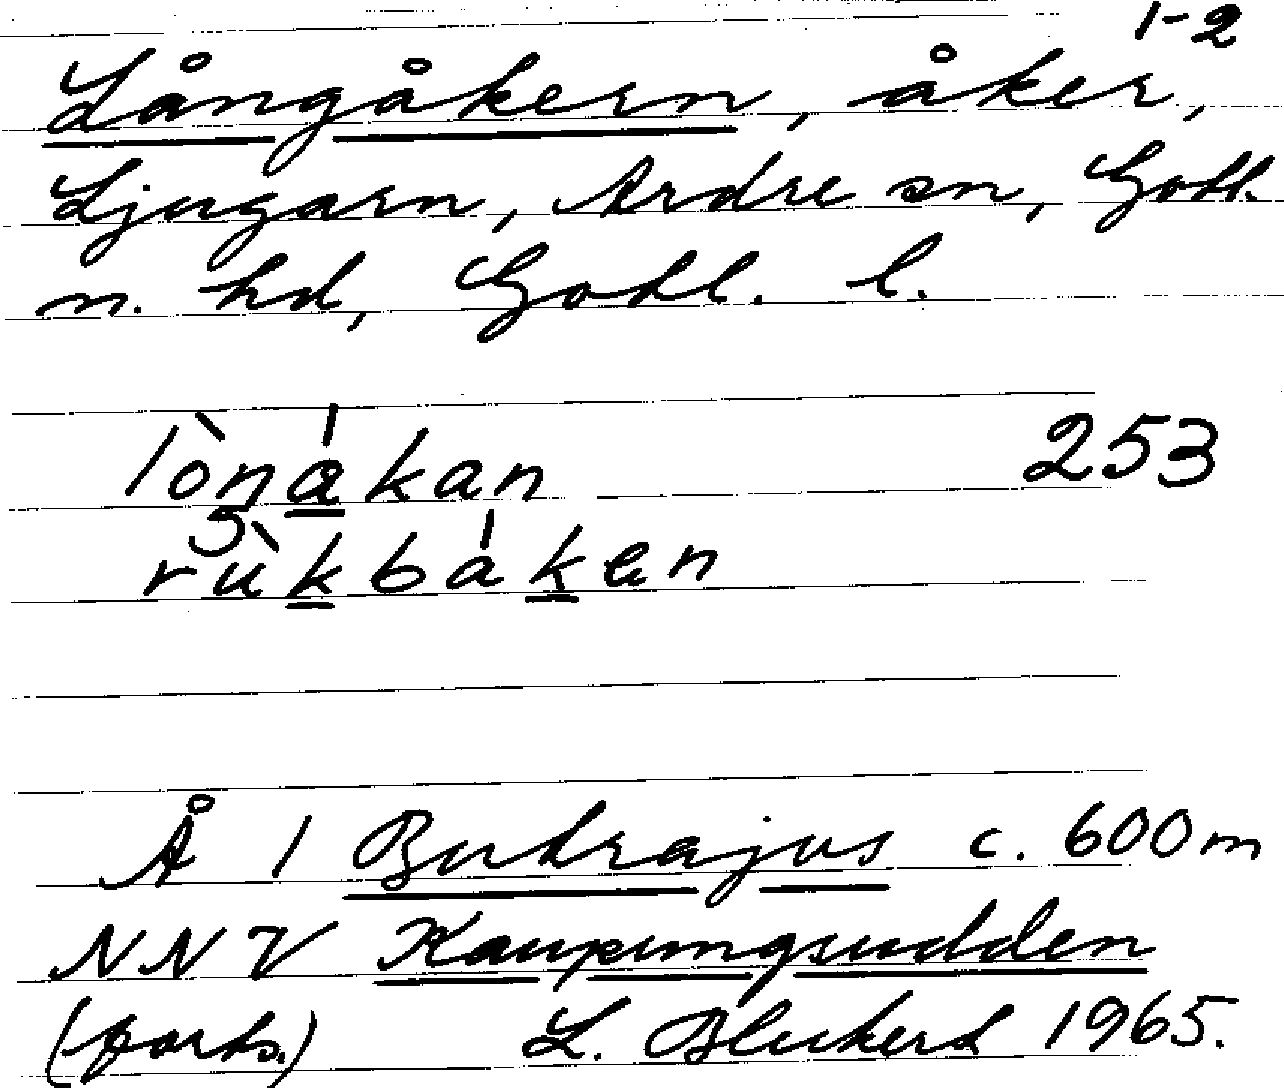 1-2
Långåkern, åker,
Ljugarn, Ardre sn, Gotl.
n. hd, Gotl. l.
lòŋákan 253
rùkbáken
Å 1 Butrajus c. 600 m
NNV Kaupungsudden
(forts.) L. Bleckert 1965.